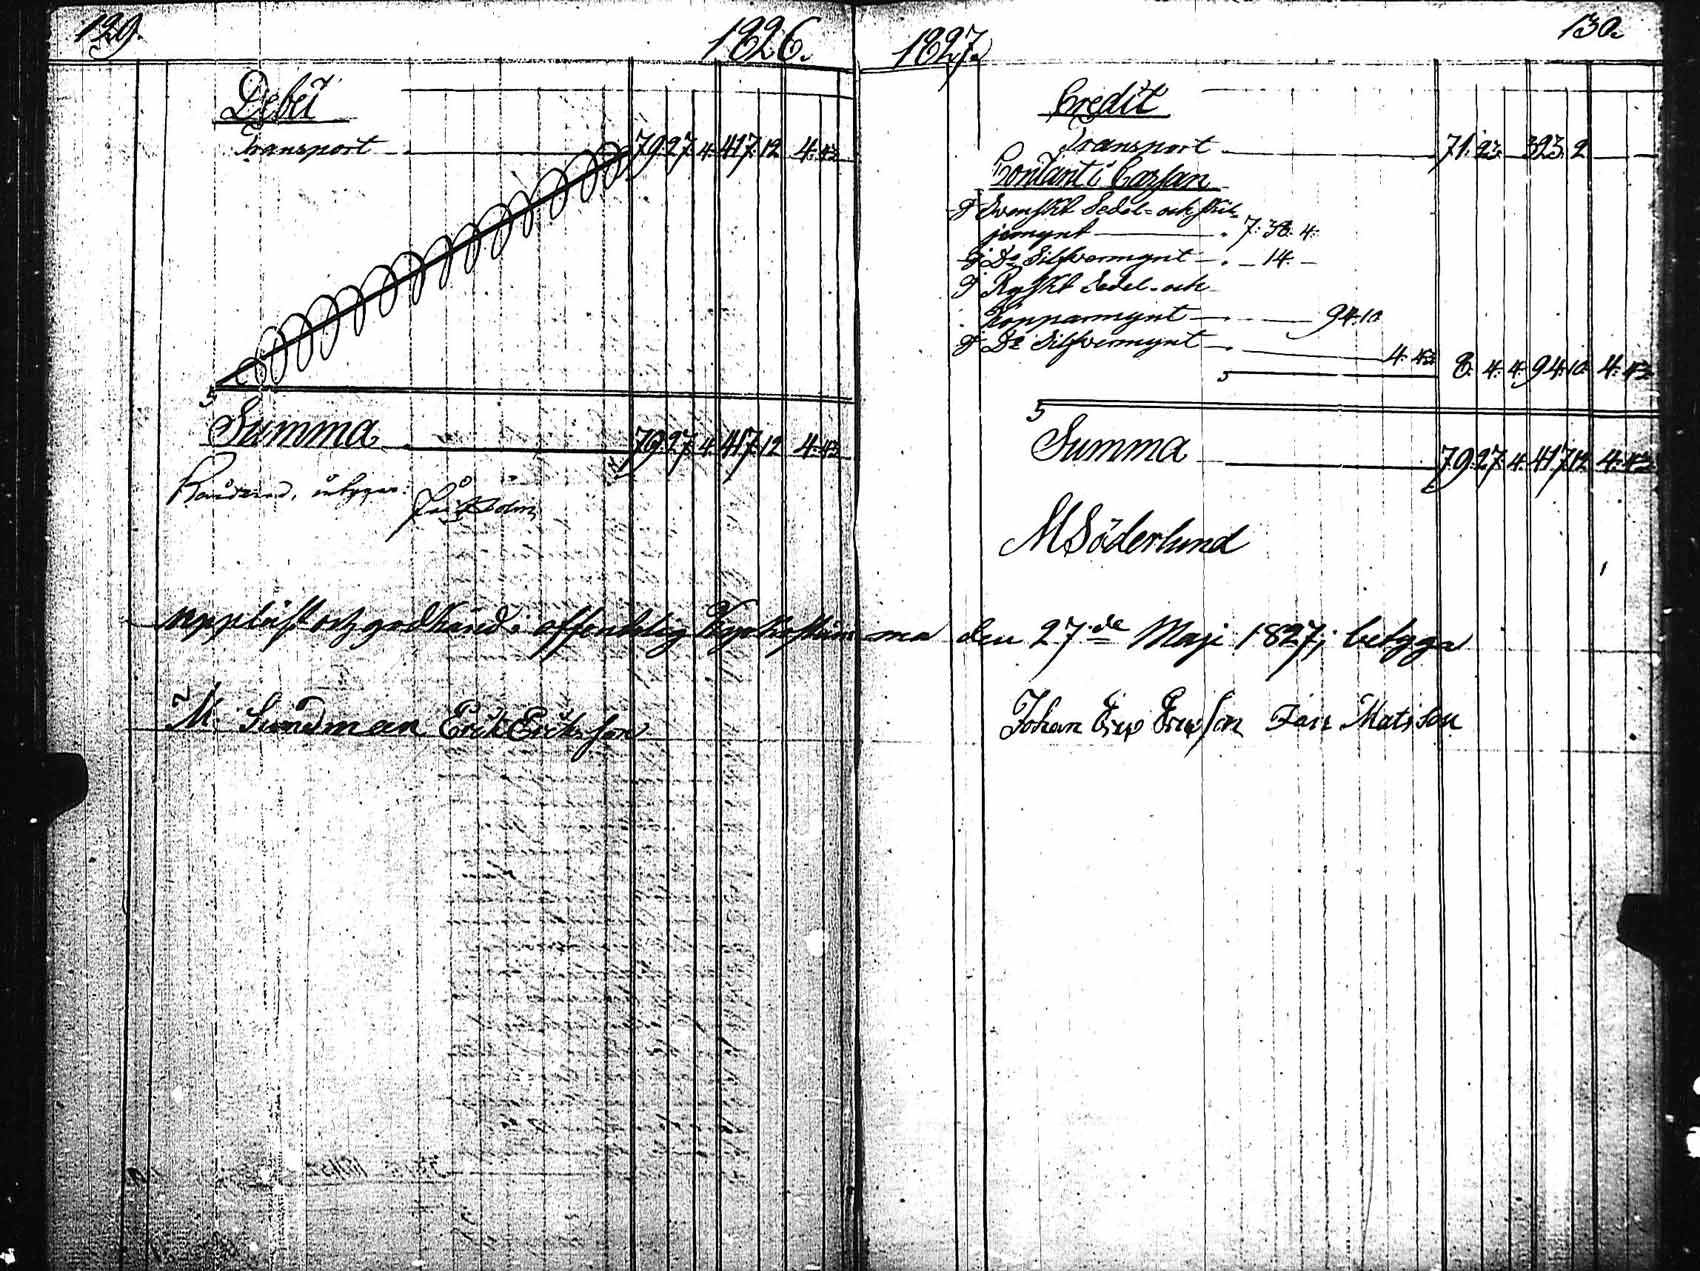 129.
1826.
Debet
Transport 79. 27. 4. 417. 12 4. 43
S
Summa 79. 27. 4. 417. 12 4. 43
Holm
1827.
130.
Credit
Transport 71. 23. 323. 2
Contant i Cassan
I Svenskt Sedel- och skil-
jemynt 7. 38. 4.
I Do Silfvermynt 14.
I Ryskt Sedel- och
Kopparmynt 94. 10
I Do Silfvermynt 4. 43 8. 4. 4. 94. 10 4. 43
S
Summa 79. 27. 4. 417. 12 4. 43
M Söderlund
Uppläst och godkänd i offentelig Kyrkostämma den 27de Maji 1827; betyga
M. Sundman Erik Erickson Johan Matsson